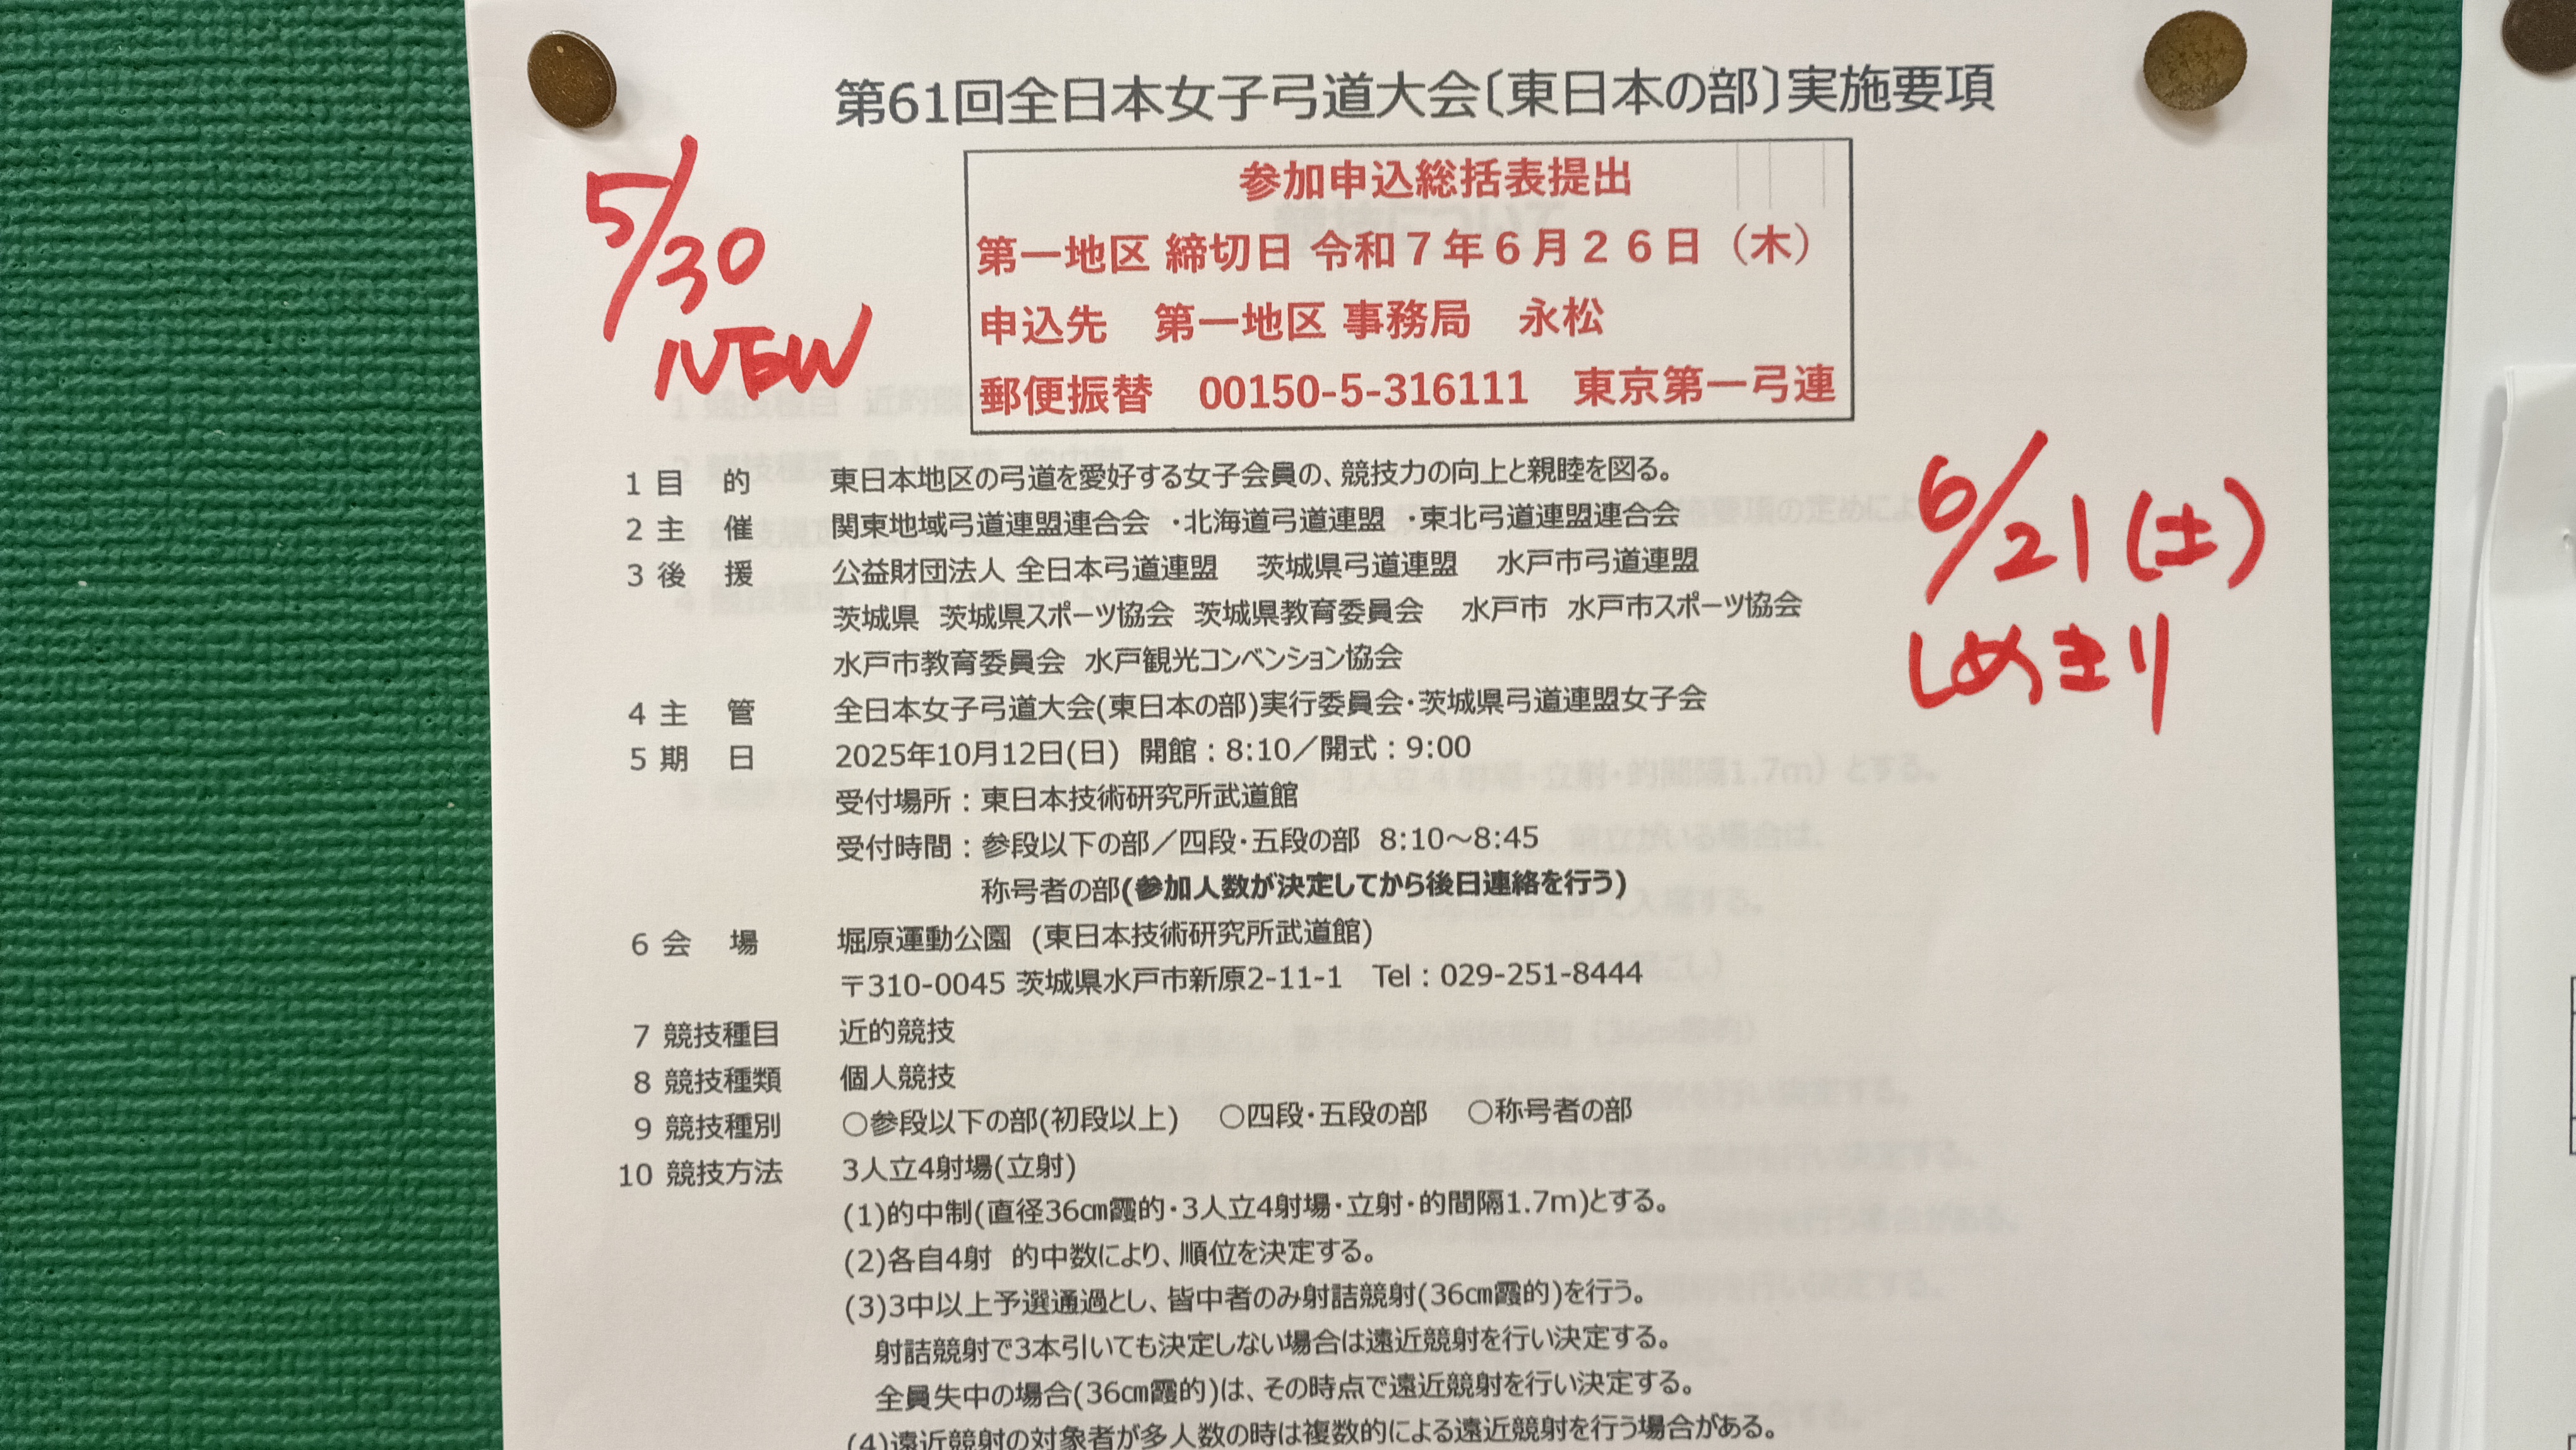 第61回全日本女子弓道大会〔東日本の部〕実施要項
5/30
NEW
参加申込総括表提出
第一地区 締切日 令和７年６月２６日（木）
申込先　第一地区 事務局　永松
郵便振替　00150-5-316111　東京第一弓連
6/21(土)
しめきり
1 目　的　東日本地区の弓道を愛好する女子会員の、競技力の向上と親睦を図る。
2 主　催　関東地域弓道連盟連合会　・北海道弓道連盟　・東北弓道連盟連合会
3 後　援　公益財団法人 全日本弓道連盟　茨城県弓道連盟　水戸市弓道連盟
茨城県　茨城県スポーツ協会　茨城県教育委員会　水戸市　水戸市スポーツ協会
水戸市教育委員会　水戸観光コンベンション協会
4 主　管　全日本女子弓道大会(東日本の部)実行委員会・茨城県弓道連盟女子会
5 期　日　2025年10月12日(日)　開館：8:10／開式：9:00
受付場所：東日本技術研究所武道館
受付時間：参段以下の部／四段・五段の部　8:10～8:45
称号者の部(参加人数が決定してから後日連絡を行う)
6 会　場　堀原運動公園　(東日本技術研究所武道館)
〒310-0045 茨城県水戸市新原2-11-1　Tel：029-251-8444
7 競技種目　近的競技
8 競技種類　個人競技
9 競技種別　○参段以下の部(初段以上)　○四段・五段の部　○称号者の部
10 競技方法　3人立4射場(立射)
(1)的中制(直径36㎝霞的・3人立4射場・立射・的間隔1.7m)とする。
(2)各自4射　的中数により、順位を決定する。
(3)3中以上予選通過とし、皆中者のみ射詰競射(36㎝霞的)を行う。
射詰競射で3本引いても決定しない場合は遠近競射を行い決定する。
全員失中の場合(36㎝霞的)は、その時点で遠近競射を行い決定する。
(4)遠近競射の対象者が多人数の時は複数的による遠近競射を行う場合がある。